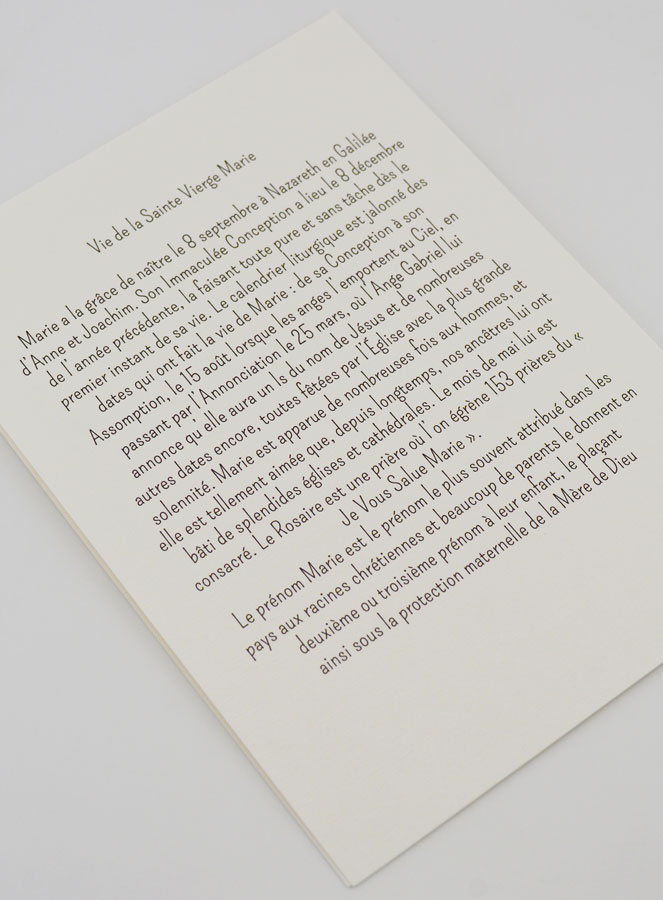 Vie de la Sainte Vierge Marie
Marie a la grâce de naître le 8 septembre à Nazareth en Galilée
d'Anne et Joachim. Son Immaculée Conception a lieu le 8 décembre
de l'année précédente, la faisant toute pure et sans tâche dès le
premier instant de sa vie. Le calendrier liturgique est jalonné des
dates qui ont fait la vie de Marie : de sa Conception à son
Assomption, le 15 août lorsque les anges l'emportent au Ciel, en
passant par l'Annonciation le 25 mars, où l'Ange Gabriel lui
annonce qu'elle aura un ls du nom de Jésus et de nombreuses
autres dates encore, toutes fêtées par l'Église avec la plus grande
solennité. Marie est apparue de nombreuses fois aux hommes, et
elle est tellement aimée que, depuis longtemps, nos ancêtres lui ont
bâti de splendides églises et cathédrales. Le mois de mai lui est
consacré. Le Rosaire est une prière où l'on égrène 153 prières du «
Je Vous Salue Marie ».
Le prénom Marie est le prénom le plus souvent attribué dans les
pays aux racines chrétiennes et beaucoup de parents le donnent en
deuxième ou troisième prénom à leur enfant, le plaçant
ainsi sous la protection maternelle de la Mère de Dieu